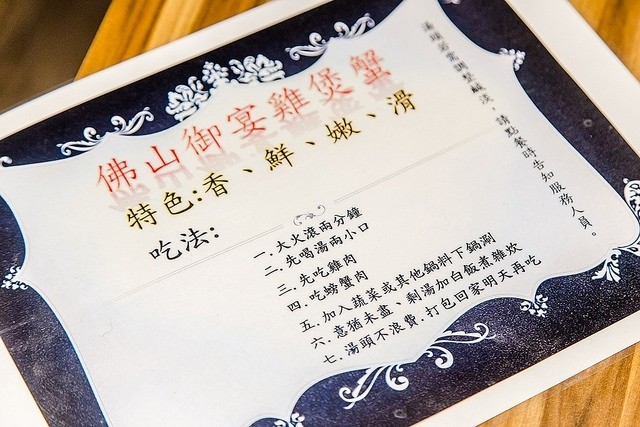 佛山御宴雞煲蟹
特色:香、鮮、嫩、滑
吃法:
一.大火滾兩分鐘
二.先喝湯兩小口
三.先吃雞肉
四.吃螃蟹肉
五.加入蔬菜或其他鍋料下鍋涮
六.意猶未盡、剩湯加白飯煮雜炊
七.湯頭不浪費.打包回家明天再吃
湯頭若需調整鹹淡，請點餐時告知服務人員。